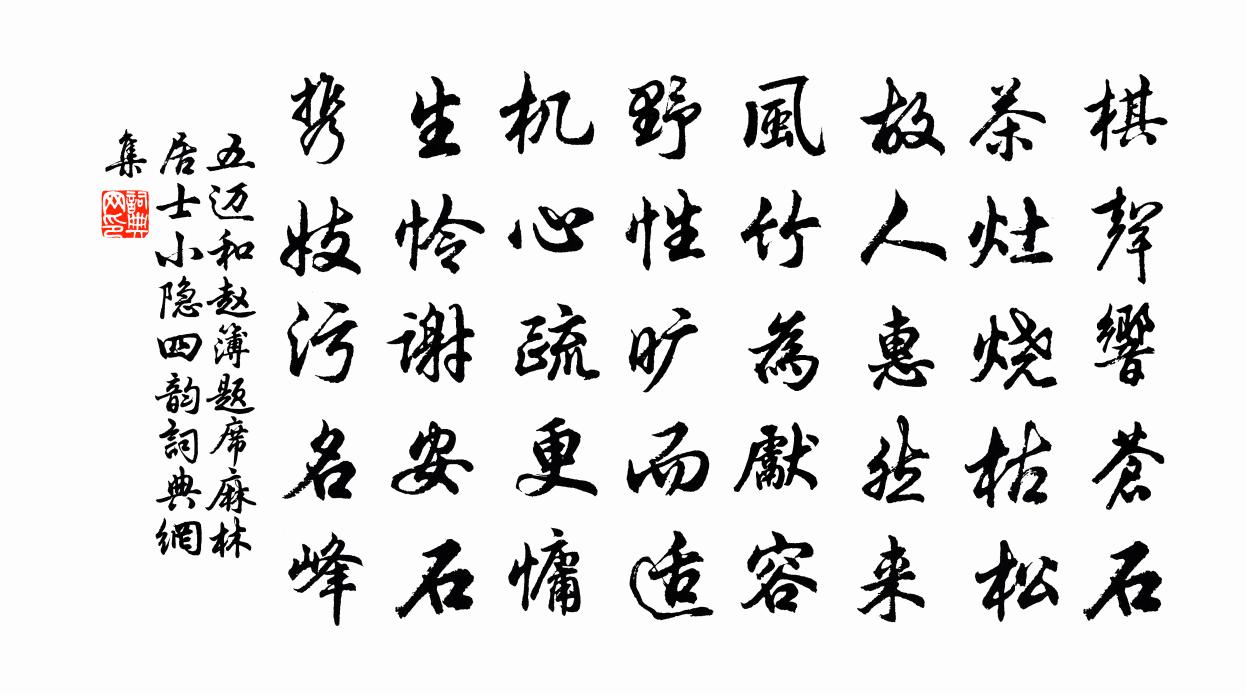 棋聲響蒼石
茶灶烧枯松
故人惠然来
風竹為獻容
野性旷而适
机心疏更慵
生怜谢安石
携妓污名峰
五迈和赵簿题席麻林
居士小隐四韵詞典網
集
詞典網印